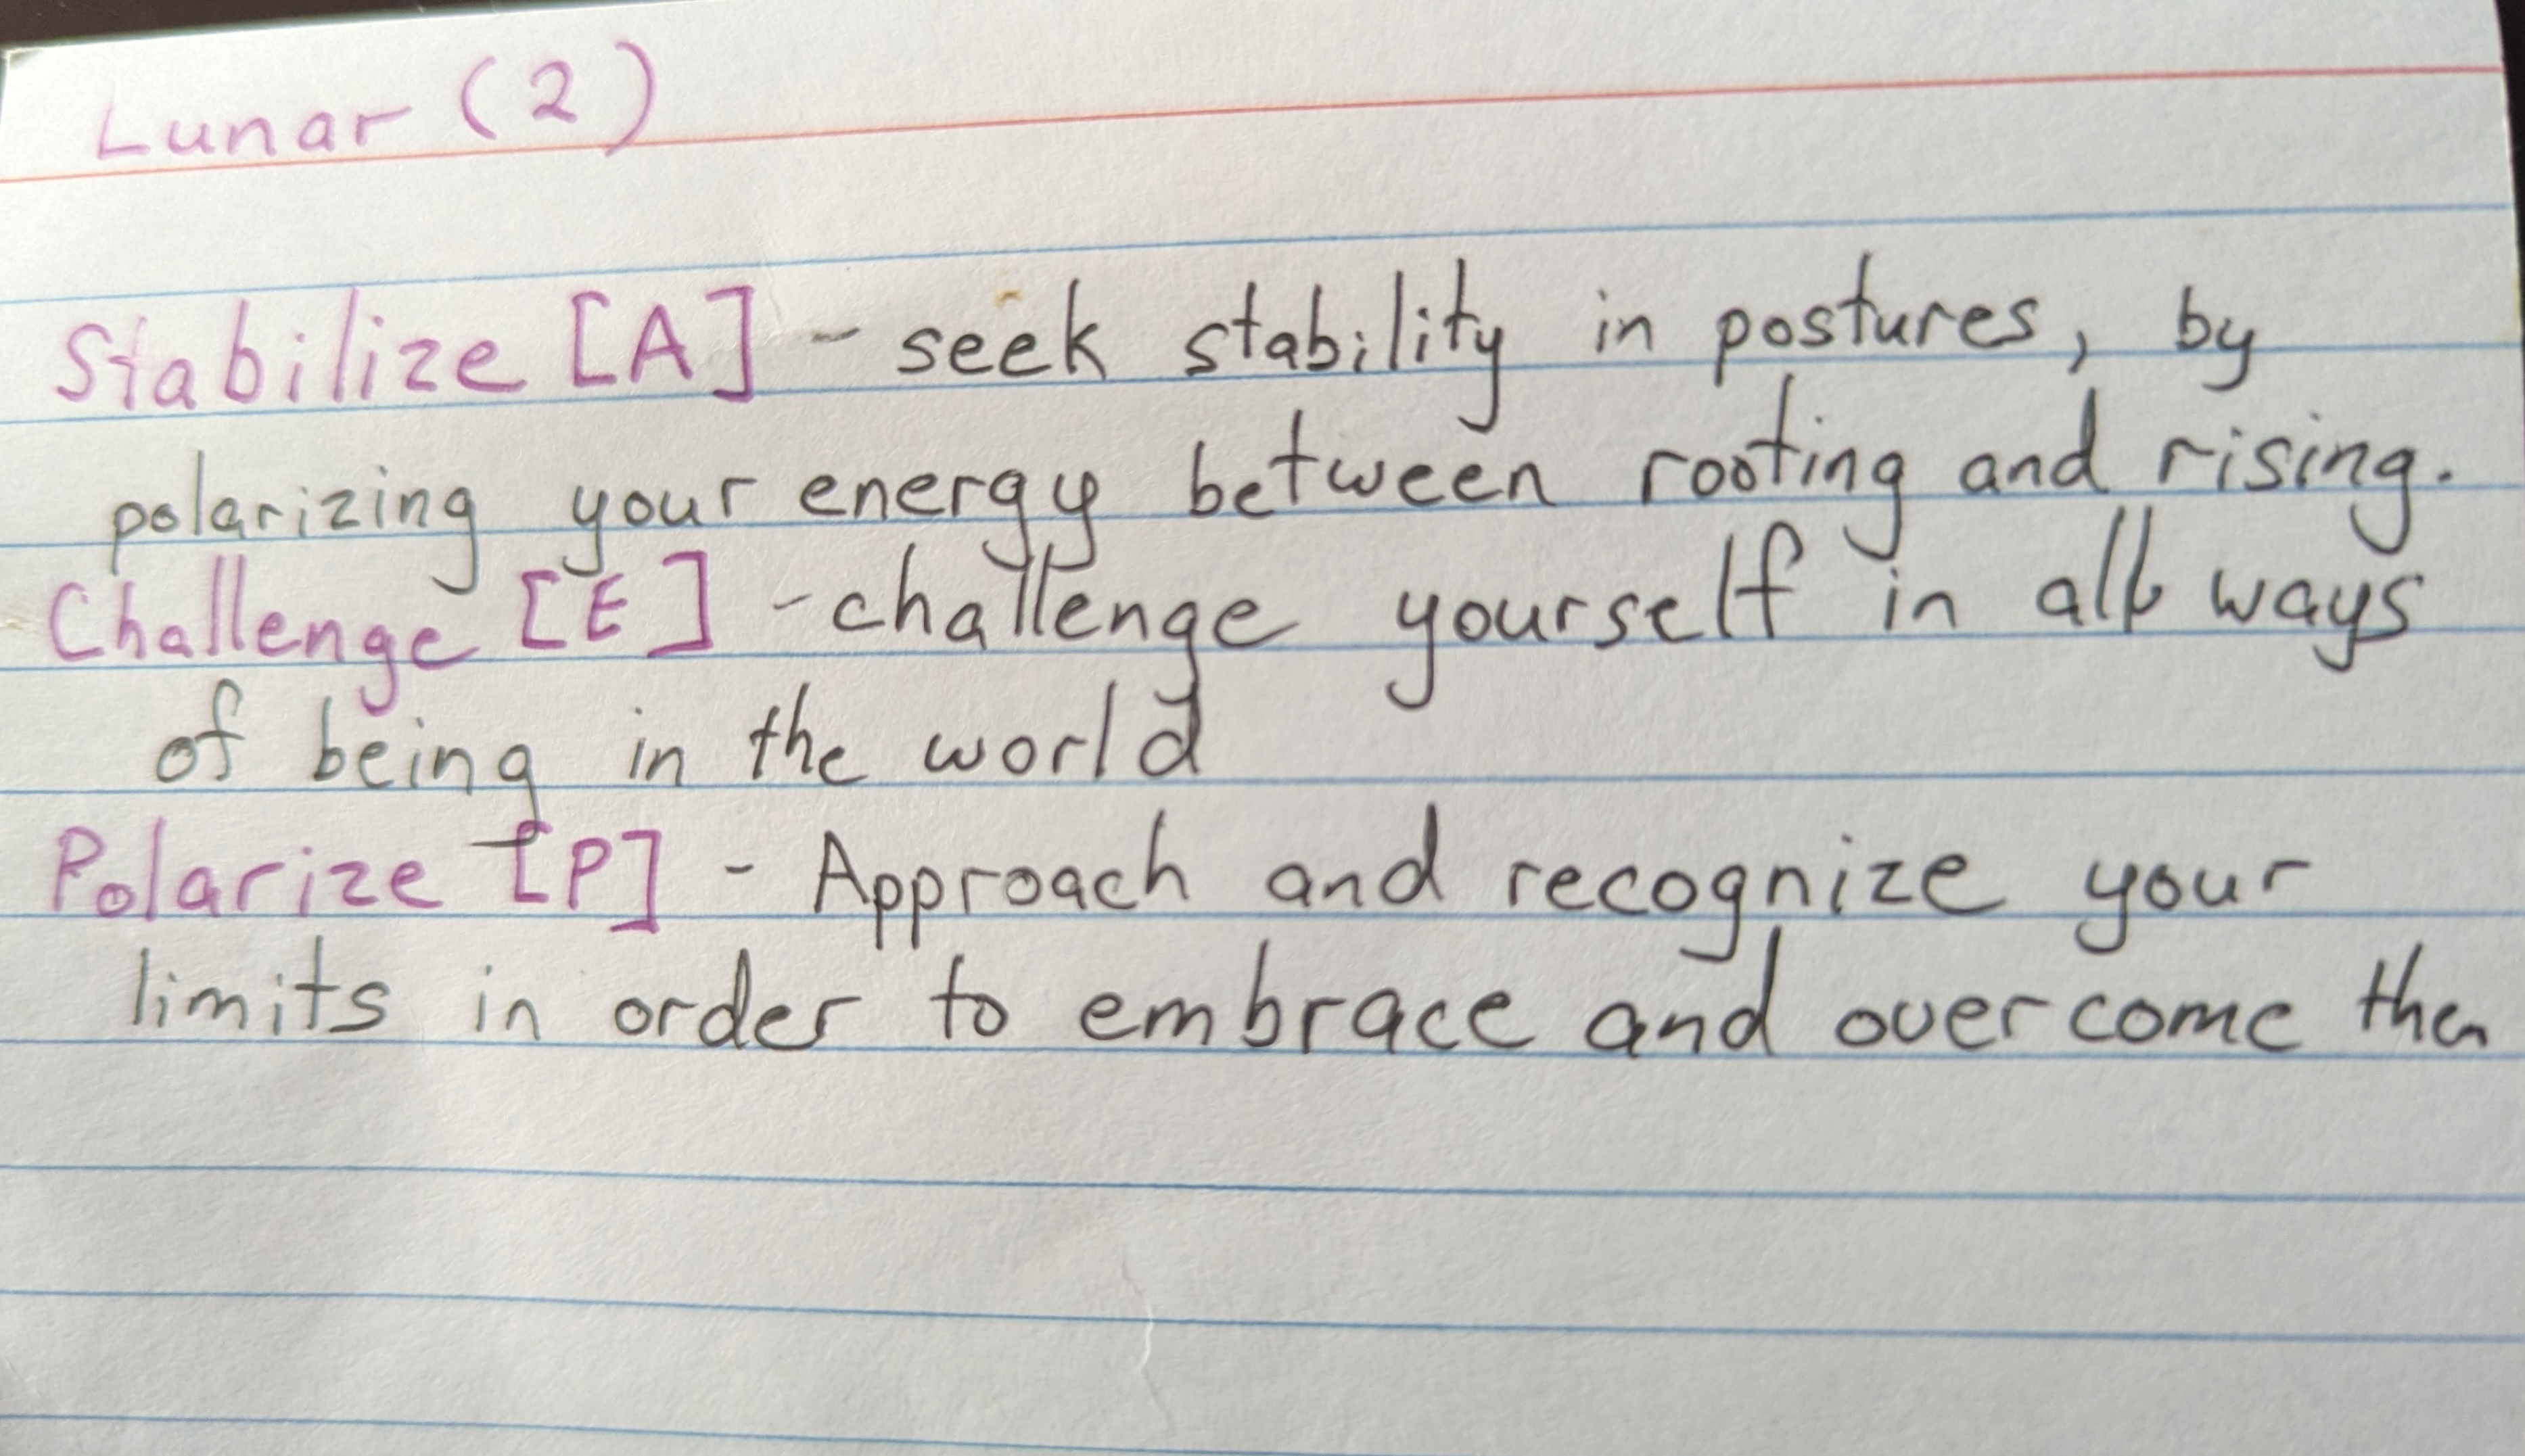 Lunar (2)
Stabilize [A] - seek stability in postures, by
polarizing your energy between rooting and rising.
Challenge [E] - challenge yourself in all ways
of being in the world
Polarize [P] - Approach and recognize your
limits in order to embrace and overcome them